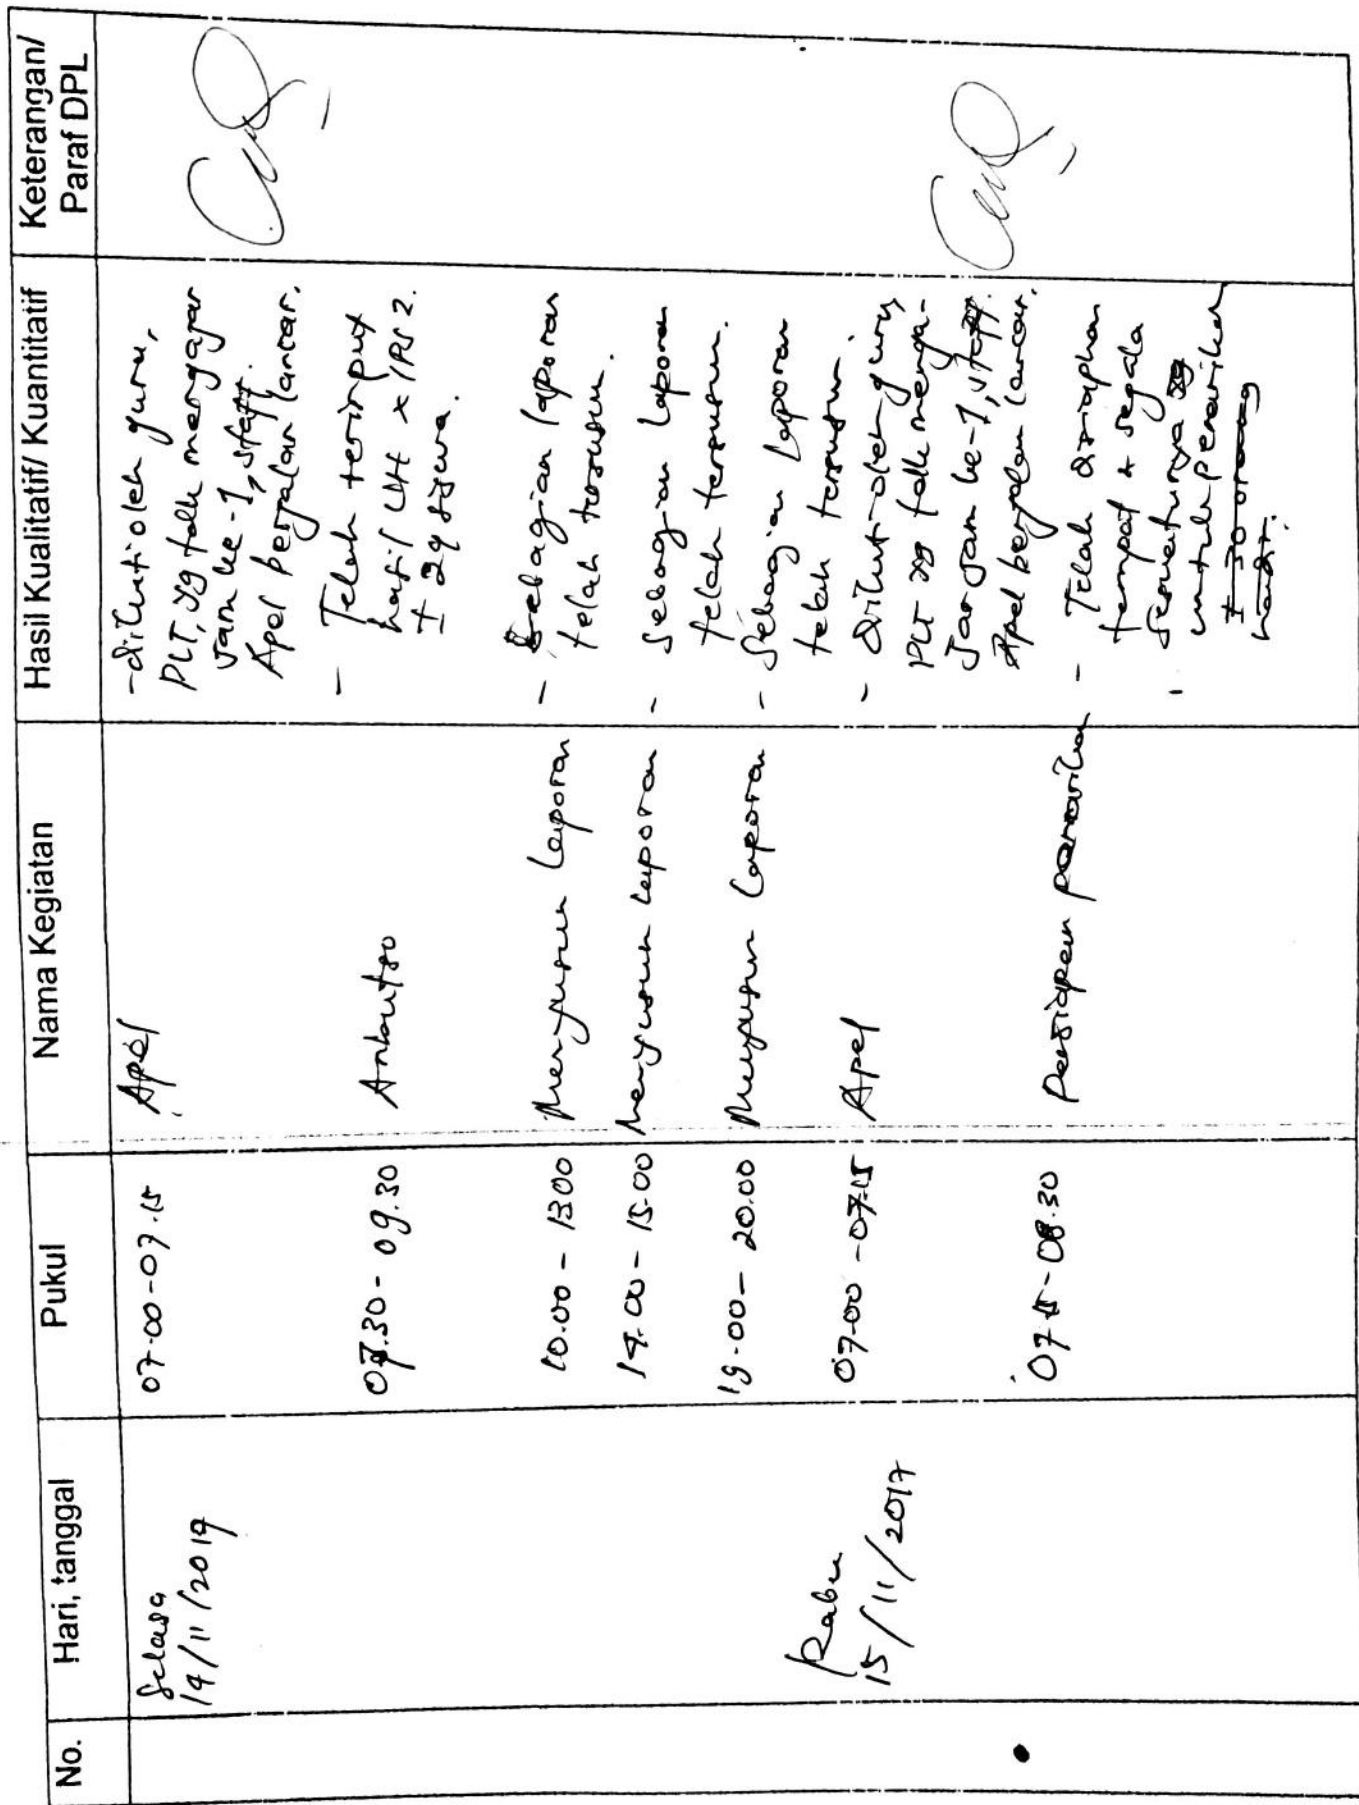 No.
Hari, tanggal
Pukul
Nama Kegiatan
Hasil Kualitatif/ Kuantitatif
Keterangan/
Paraf DPL
Selasa
14/11/2019
07.00-07.15
Apel
- diikuti oleh guru,
PLT, yg tdk mengajar
jam ke-1, staff.
Apel berjalan lancar.
07.30 - 09.30
- Telah terinput
hasil UH X IPS 2.
± 29 siswa.
10.00 - 13.00
Menyusun Laporan
- Sebagian laporan
telah tersusun.
14.00 - 15.00
Menyusun Laporan
- Sebagian Laporan
telah tersusun.
19.00 - 20.00
Menyusun Laporan
- Sebagian Laporan
telah tersusun.
Rabu
15/11/2017
07.00 - 07.15
Apel
- diikuti oleh guru,
PLT yg tdk menga-
jar jam ke-1, staff.
Apel berjalan lancar.
07.15 - 08.30
Persiapan penarikan
- Telah disiapkan
tempat & segala
sesuatunya yg
untuk penarikan
± 30 orang
hadir.